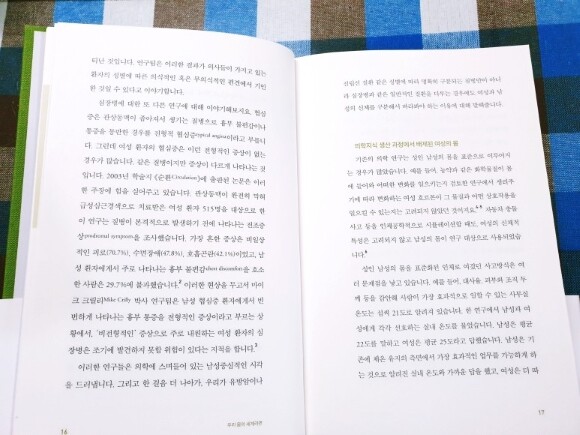 티난 것입니다. 연구팀은 이러한 결과가 의사들이 가지고 있는
환자의 성별에 따른 의식적인 혹은 무의식적인 편견에서 기인
한 것일 수 있다고 이야기합니다.
심장병에 대한 또 다른 연구에 대해 이야기해보지요. 협심
증은 관상동맥이 좁아져서 생기는 질병으로 흉부 불편감이나
통증을 동반한 경우를 전형적 협심증typical angina이라고 부릅니
다. 그런데 여성 환자의 협심증은 이런 전형적인 증상이 없는
경우가 많습니다. 같은 질병이지만 증상이 다르게 나타나는 것
입니다. 2003년 학술지 《순환Circulation》에 출판된 논문은 이러
한 주장에 힘을 실어주고 있습니다. 관상동맥이 완전히 막혀
급성심근경색으로 치료받은 여성 환자 515명을 대상으로 한
이 연구는 질병이 본격적으로 발생하기 전에 나타나는 전조증
상prodromal symptom을 조사했습니다. 가장 흔한 증상은 비일상
적인 피로(70.7%), 수면장애(47.8%), 호흡곤란(42.1%)이었고, 남
성 환자에게서 주로 나타나는 흉부 불편감chest discomfort을 호소
한 사람은 29.7%에 불과했습니다.2 이러한 현상을 두고서 마이
크 크릴리Mike Crilly 박사 연구팀은 남성 협심증 환자에게서 빈
번하게 나타나는 흉부 통증을 전형적인 증상이라고 부르는 상
황에서, '비전형적인' 증상으로 주로 내원하는 여성 환자의 심
장병은 조기에 발견하지 못할 위험이 있다는 지적을 합니다.3
이러한 연구들은 의학에 스며들어 있는 남성중심적인 시각
을 드러냅니다. 그리고 한 걸음 더 나아가, 우리가 유방암이나
16
우리 몸이 세계라면
전립선 질환 같은 성별에 따라 명확히 구분되는 질병만이 아니
라 심장병과 같은 일반적인 질환을 다루는 경우에도 여성과 남
성의 신체를 구분해서 바라봐야 하는 이유에 대해 말해줍니다.
의학지식 생산 과정에서 배제된 여성의 몸
기존의 의학 연구는 성인 남성의 몸을 표준으로 여겨져서
는 경우가 많았습니다. 예를 들어, 농약과 같은 화학물질이 몸
에 들어와 어떠한 변화를 일으키는지 검토한 연구에서 생리주
기에 따라 변화하는 여성 호르몬이 그 물질과 어떤 상호작용을
일으킬 수 있는지는 고려되지 않았던 것이지요.4, 5 자동차 충돌
사고 등을 인체공학적으로 시뮬레이션할 때도, 여성의 신체적
특성은 고려되지 않고 남성의 몸이 연구 대상으로 사용되었습
니다.6
성인 남성의 몸을 표준화된 인체로 여겼던 사고방식은 여
러 문제점을 낳고 있습니다. 예를 들어, 대사율, 피부와 조직 두
께 등을 감안해 사람이 가장 효과적으로 일할 수 있는 사무실
온도는 섭씨 21도로 알려져 있습니다. 한 연구에서 남성과 여
성에게 각각 선호하는 실내 온도를 물었습니다. 남성은 평균
22도를 말하고 여성은 평균 25도라고 답했습니다. 남성은 기
존에 체온 유지의 측면에서 가장 효과적인 업무를 가능하게 하
는 것으로 알려진 실내 온도와 가까운 답을 했고, 여성은 더 따
17